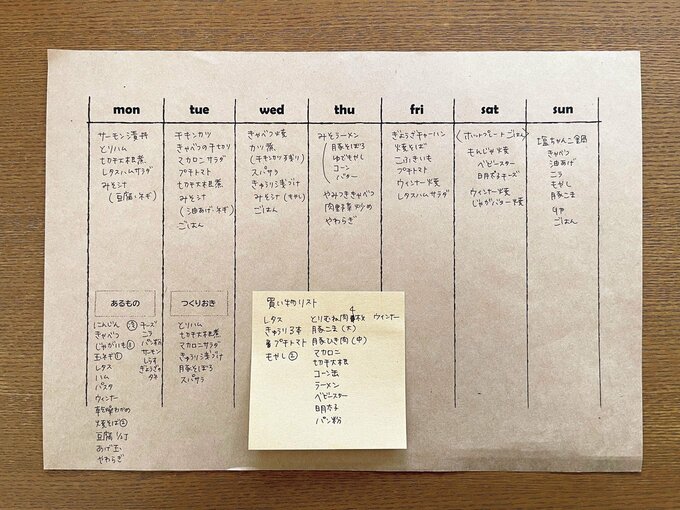 mon
サーモン漬丼
とりハム
切干大根煮
レタスハムサラダ
みそ汁
(豆腐・ネギ)
tue
チキンカツ
きゃべつの千切り
マカロニサラダ
プチトマト
切干大根煮
みそ汁
(油あげ・ネギ)
ごはん
wed
きゃべつ焼
カツ煮
(チキンカツ残り)
スパサラ
きゅうり浅づけ
みそ汁(もやし)
ごはん
thu
みそラーメン
豚そぼろ
ゆでもやし
コーン
バター
やみつききゃべつ
肉野菜炒め
やわらぎ
fri
ぎょうざチャーハン
焼そば
こふきいも
プチトマト
ウィンナー焼
レタスハムサラダ
sat
(ホットプレートごはん)
もんじゃ焼
ベビースター
明太子チーズ
ウィンナー焼
じゃがバター焼
sun
塩ちゃんこ鍋
きゃべつ
油あげ
ニラ
もやし
豚こま
ごはん
あるもの
にんじん
きゃべつ
じゃがいも
玉ネギ①
レタス
ハム
パスタ
ウィンナー
乾燥わかめ
焼そば②
豆腐 1/2丁
あげ玉
やわらぎ
チーズ
ニラ
パン粉
サーモン
しらす
ぎょうざ
つくりおき
とりハム
切干大根煮
マカロニサラダ
きゅうり浅づけ
豚そぼろ
スパサラ
買い物リスト
レタス
きゅうり3本
プチトマト
もやし②
とりむね肉4枚
豚こま(大)
豚ひき肉(中)
マカロニ
切干大根
コーン缶
ラーメン
ベビースター
明太子
パン粉
ウィンナー